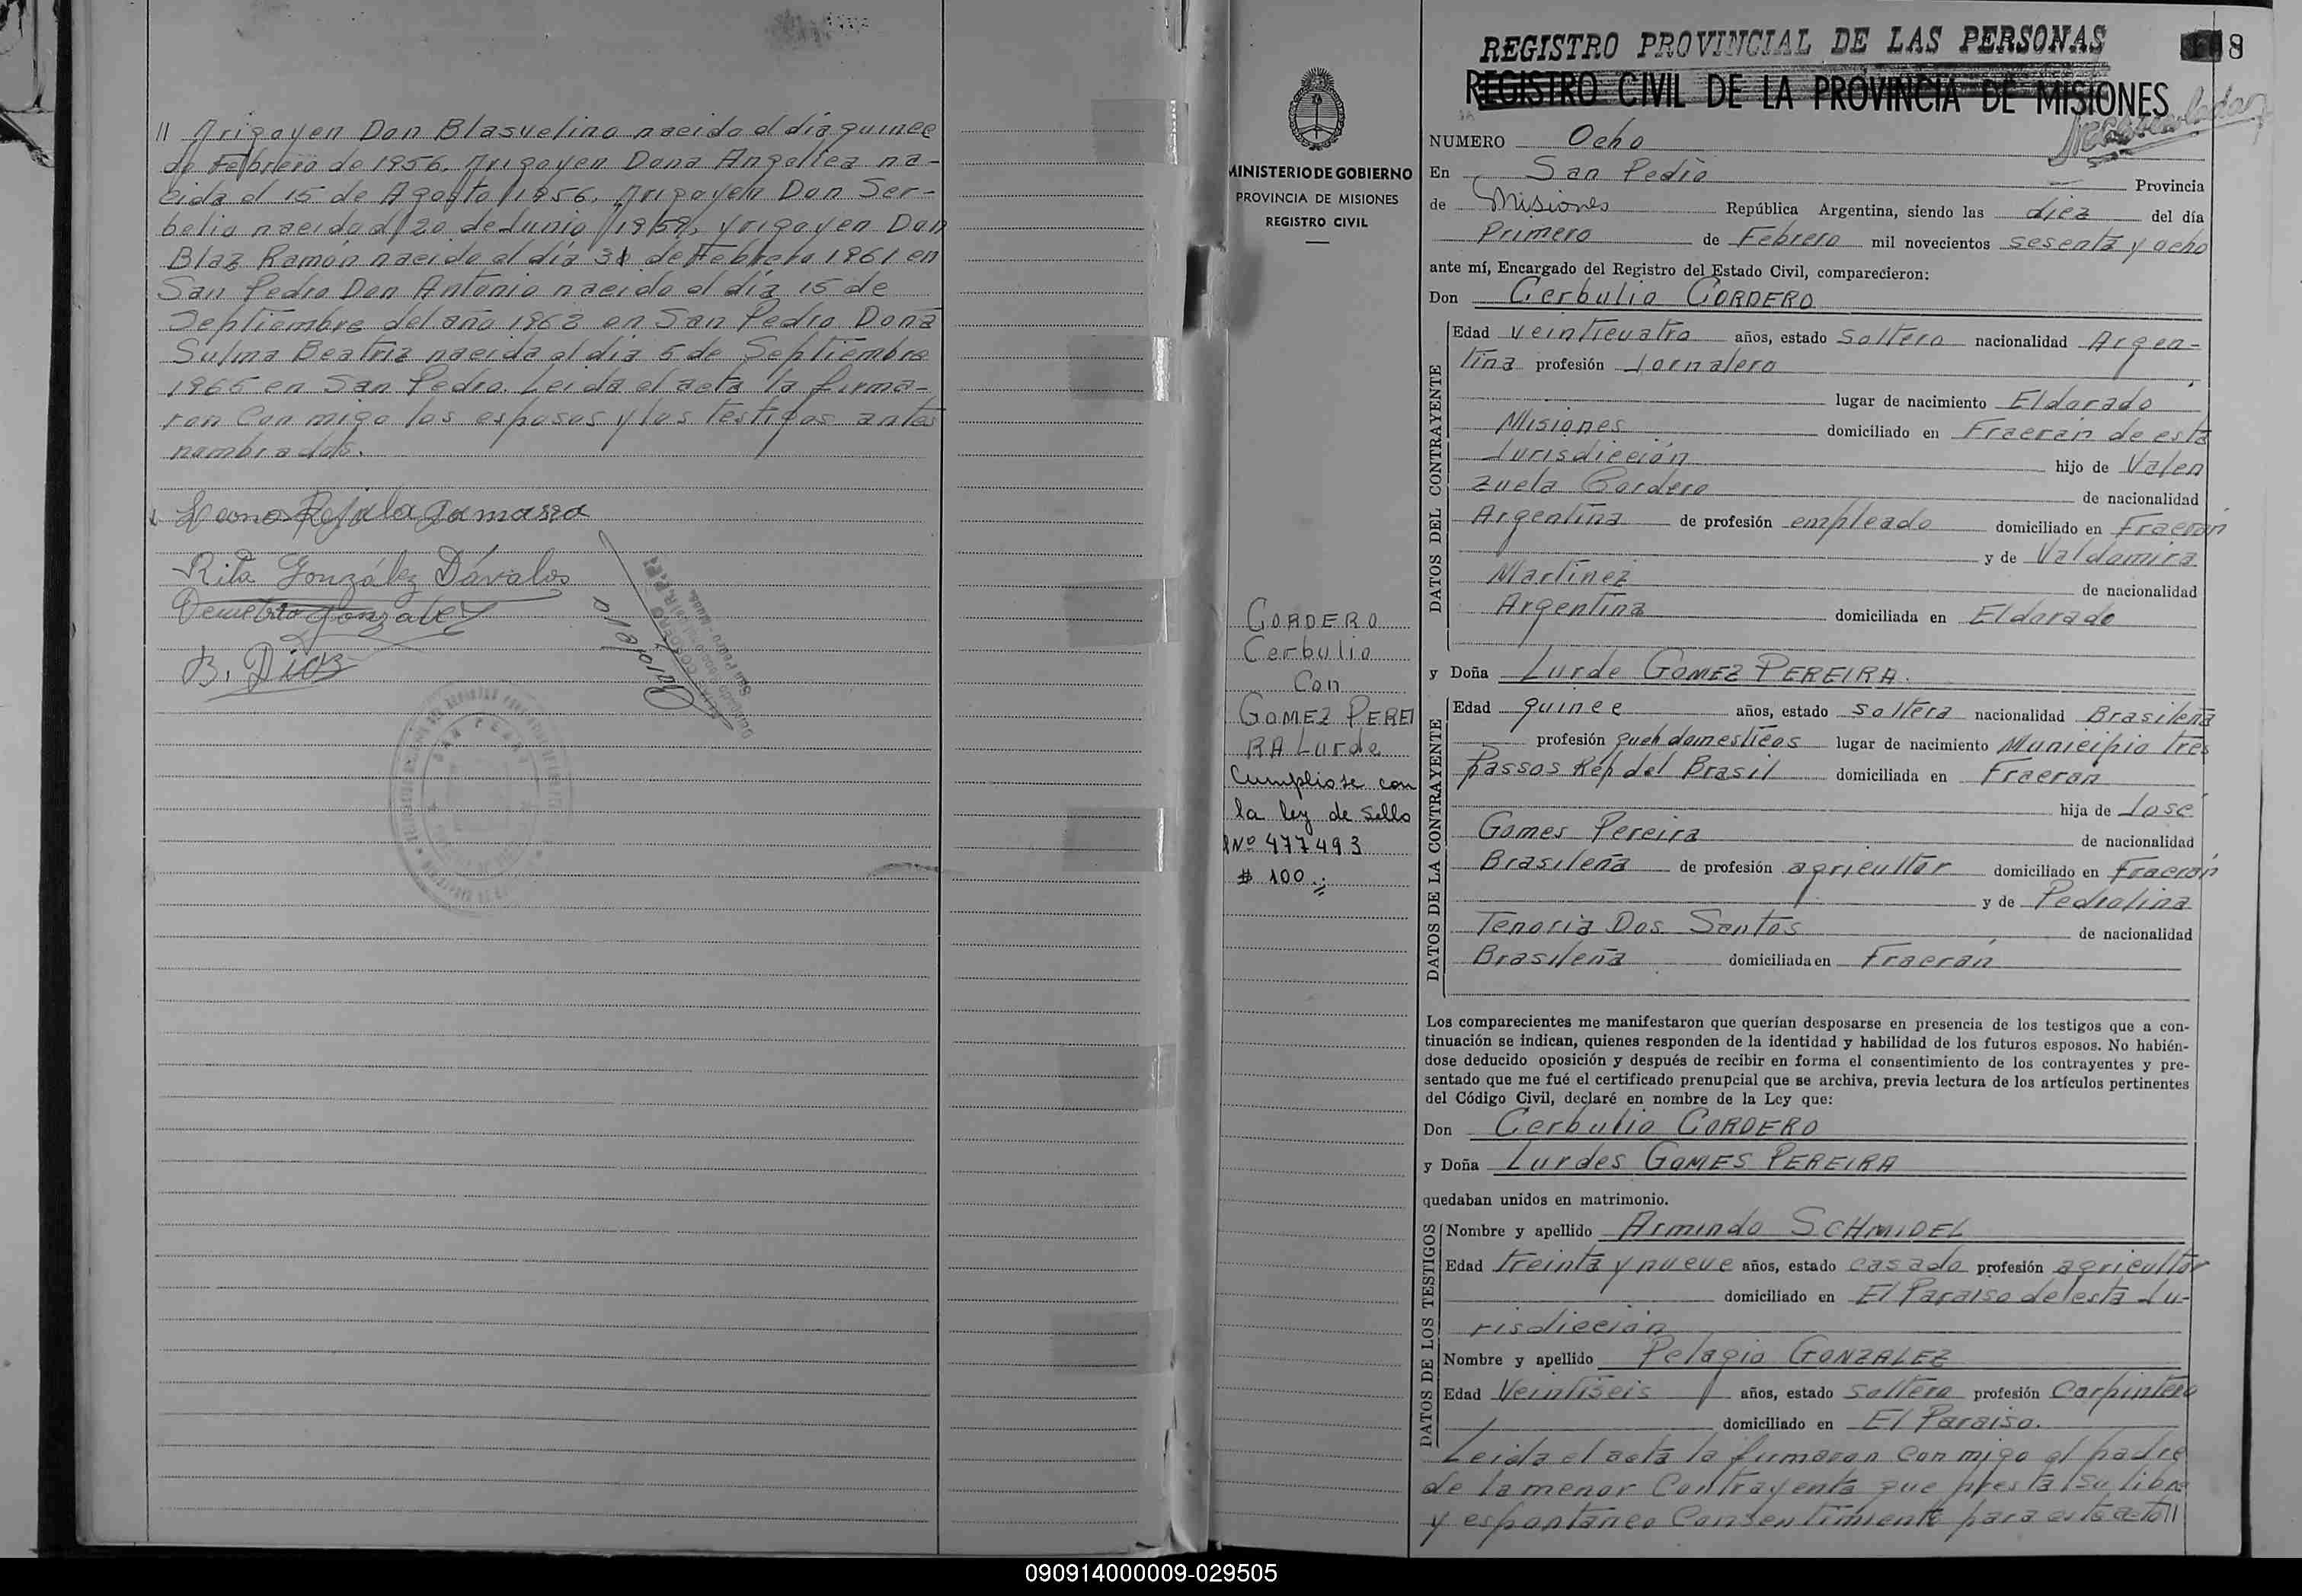 // Yrigoyen Don Blasvelino nacido el día quince
de Febrero de 1956. Yrigoyen Dona Angelica na-
cida el 15 de Agosto 1956, Yrigoyen Don Ser-
belio nacido el 20 de Junio 1959, yrigoyen Don
Blaz Ramón nacido el día 3 de Febrero 1961 en
San Pedro Don Antonio nacido el día 15 de
Septiembre del año 1963 en San Pedro Dona
Sulma Beatriz nacida el dia 5 de Septiembre
1965 en San Pedro. Leida el acta la firma-
ron Con migo los esposos y los testigos antes
nombrados.
Gamarra
Rita González Dávalos
Demetrio Gonzalez
B. Dios
MINISTERIO DE GOBIERNO
PROVINCIA DE MISIONES
REGISTRO CIVIL
CORDERO
Cerbulio
Con
GOMEZ PEREI
RA Lurde
Cumpliose con
la ley de Sello
Nº 477493
$ 100.=
REGISTRO PROVINCIAL DE LAS PERSONAS
8
REGISTRO CIVIL DE LA PROVINCIA DE MISIONES
NUMERO Ocho
En San Pedro Provincia
de Misiones República Argentina, siendo las diez del día
Primero de Febrero mil novecientos sesenta y ocho
ante mí, Encargado del Registro del Estado Civil, comparecieron:
Don Cerbulio CORDERO
DATOS DEL CONTRAYENTE
Edad veinticuatro años, estado Soltero nacionalidad Argen-
tina profesión Jornalero
lugar de nacimiento Eldorado
Misiones domiciliado en Fracrán de esta
Jurisdicción hijo de Valen
zuela Cordero de nacionalidad
Argentina de profesión empleado domiciliado en Fracrán
y de Valdomira
Martinez de nacionalidad
Argentina domiciliada en Eldorado
y Doña Lurde GOMEZ PEREIRA.
DATOS DE LA CONTRAYENTE
Edad quince años, estado soltera nacionalidad Brasileña
profesión queh domesticos lugar de nacimiento Municipio tres
passos Rep del Brasil domiciliada en Fracran
hija de José
Gomes Pereira de nacionalidad
Brasileña de profesión agricultor domiciliado en Fracrán
y de Pedrolina
Tenoria Dos Santos de nacionalidad
Brasileña domiciliada en Fracrán
Los comparecientes me manifestaron que querían desposarse en presencia de los testigos que a con-
tinuación se indican, quienes responden de la identidad y habilidad de los futuros esposos. No habién-
dose deducido oposición y después de recibir en forma el consentimiento de los contrayentes y pre-
sentado que me fué el certificado prenupcial que se archiva, previa lectura de los artículos pertinentes
del Código Civil, declaré en nombre de la Ley que:
Don Cerbulio CORDERO
y Doña Lurdes GOMES PEREIRA
quedaban unidos en matrimonio.
DATOS DE LOS TESTIGOS
Nombre y apellido Armindo SCHMIDEL
Edad treinta y nueve años, estado casado profesión agricultor
domiciliado en El Paraiso de esta Ju-
risdicción
Nombre y apellido Pelagio GONZALEZ
Edad Veintiseis años, estado soltero profesión Carpintero
domiciliado en El Paraiso.
Leida el acta la firmaron Con migo el padre
de la menor Contrayente que presta su libre
y espontaneo Consentimiento para este acto//
090914000009-029505